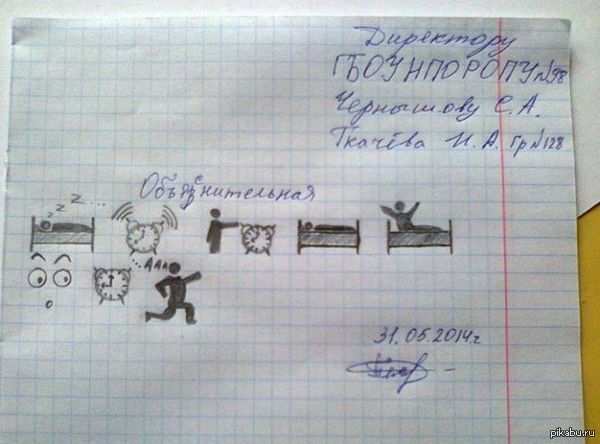 Директору
ГБОУНПОРОПУ№98
Чернышову С.А.
Ткачёва И.А. гр№128
Объяснительная
z z z...
...AAAA
31.05.2014г
pikabu.ru